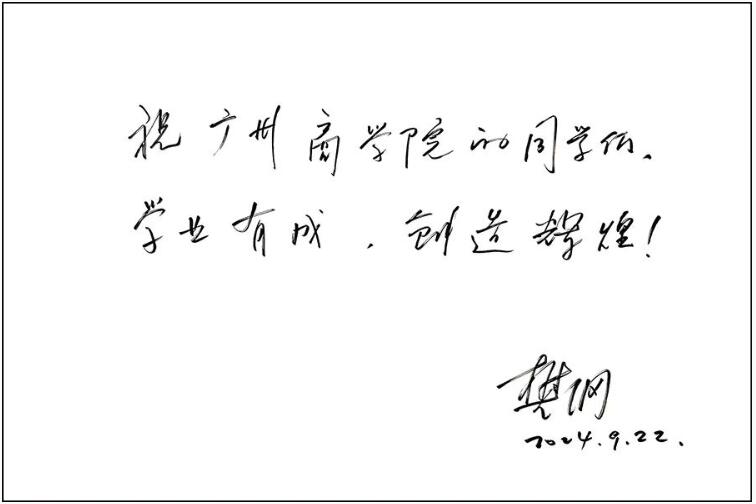 祝广州商学院的同学们、
学业有成，创造辉煌！
樊纲
2024.9.22.